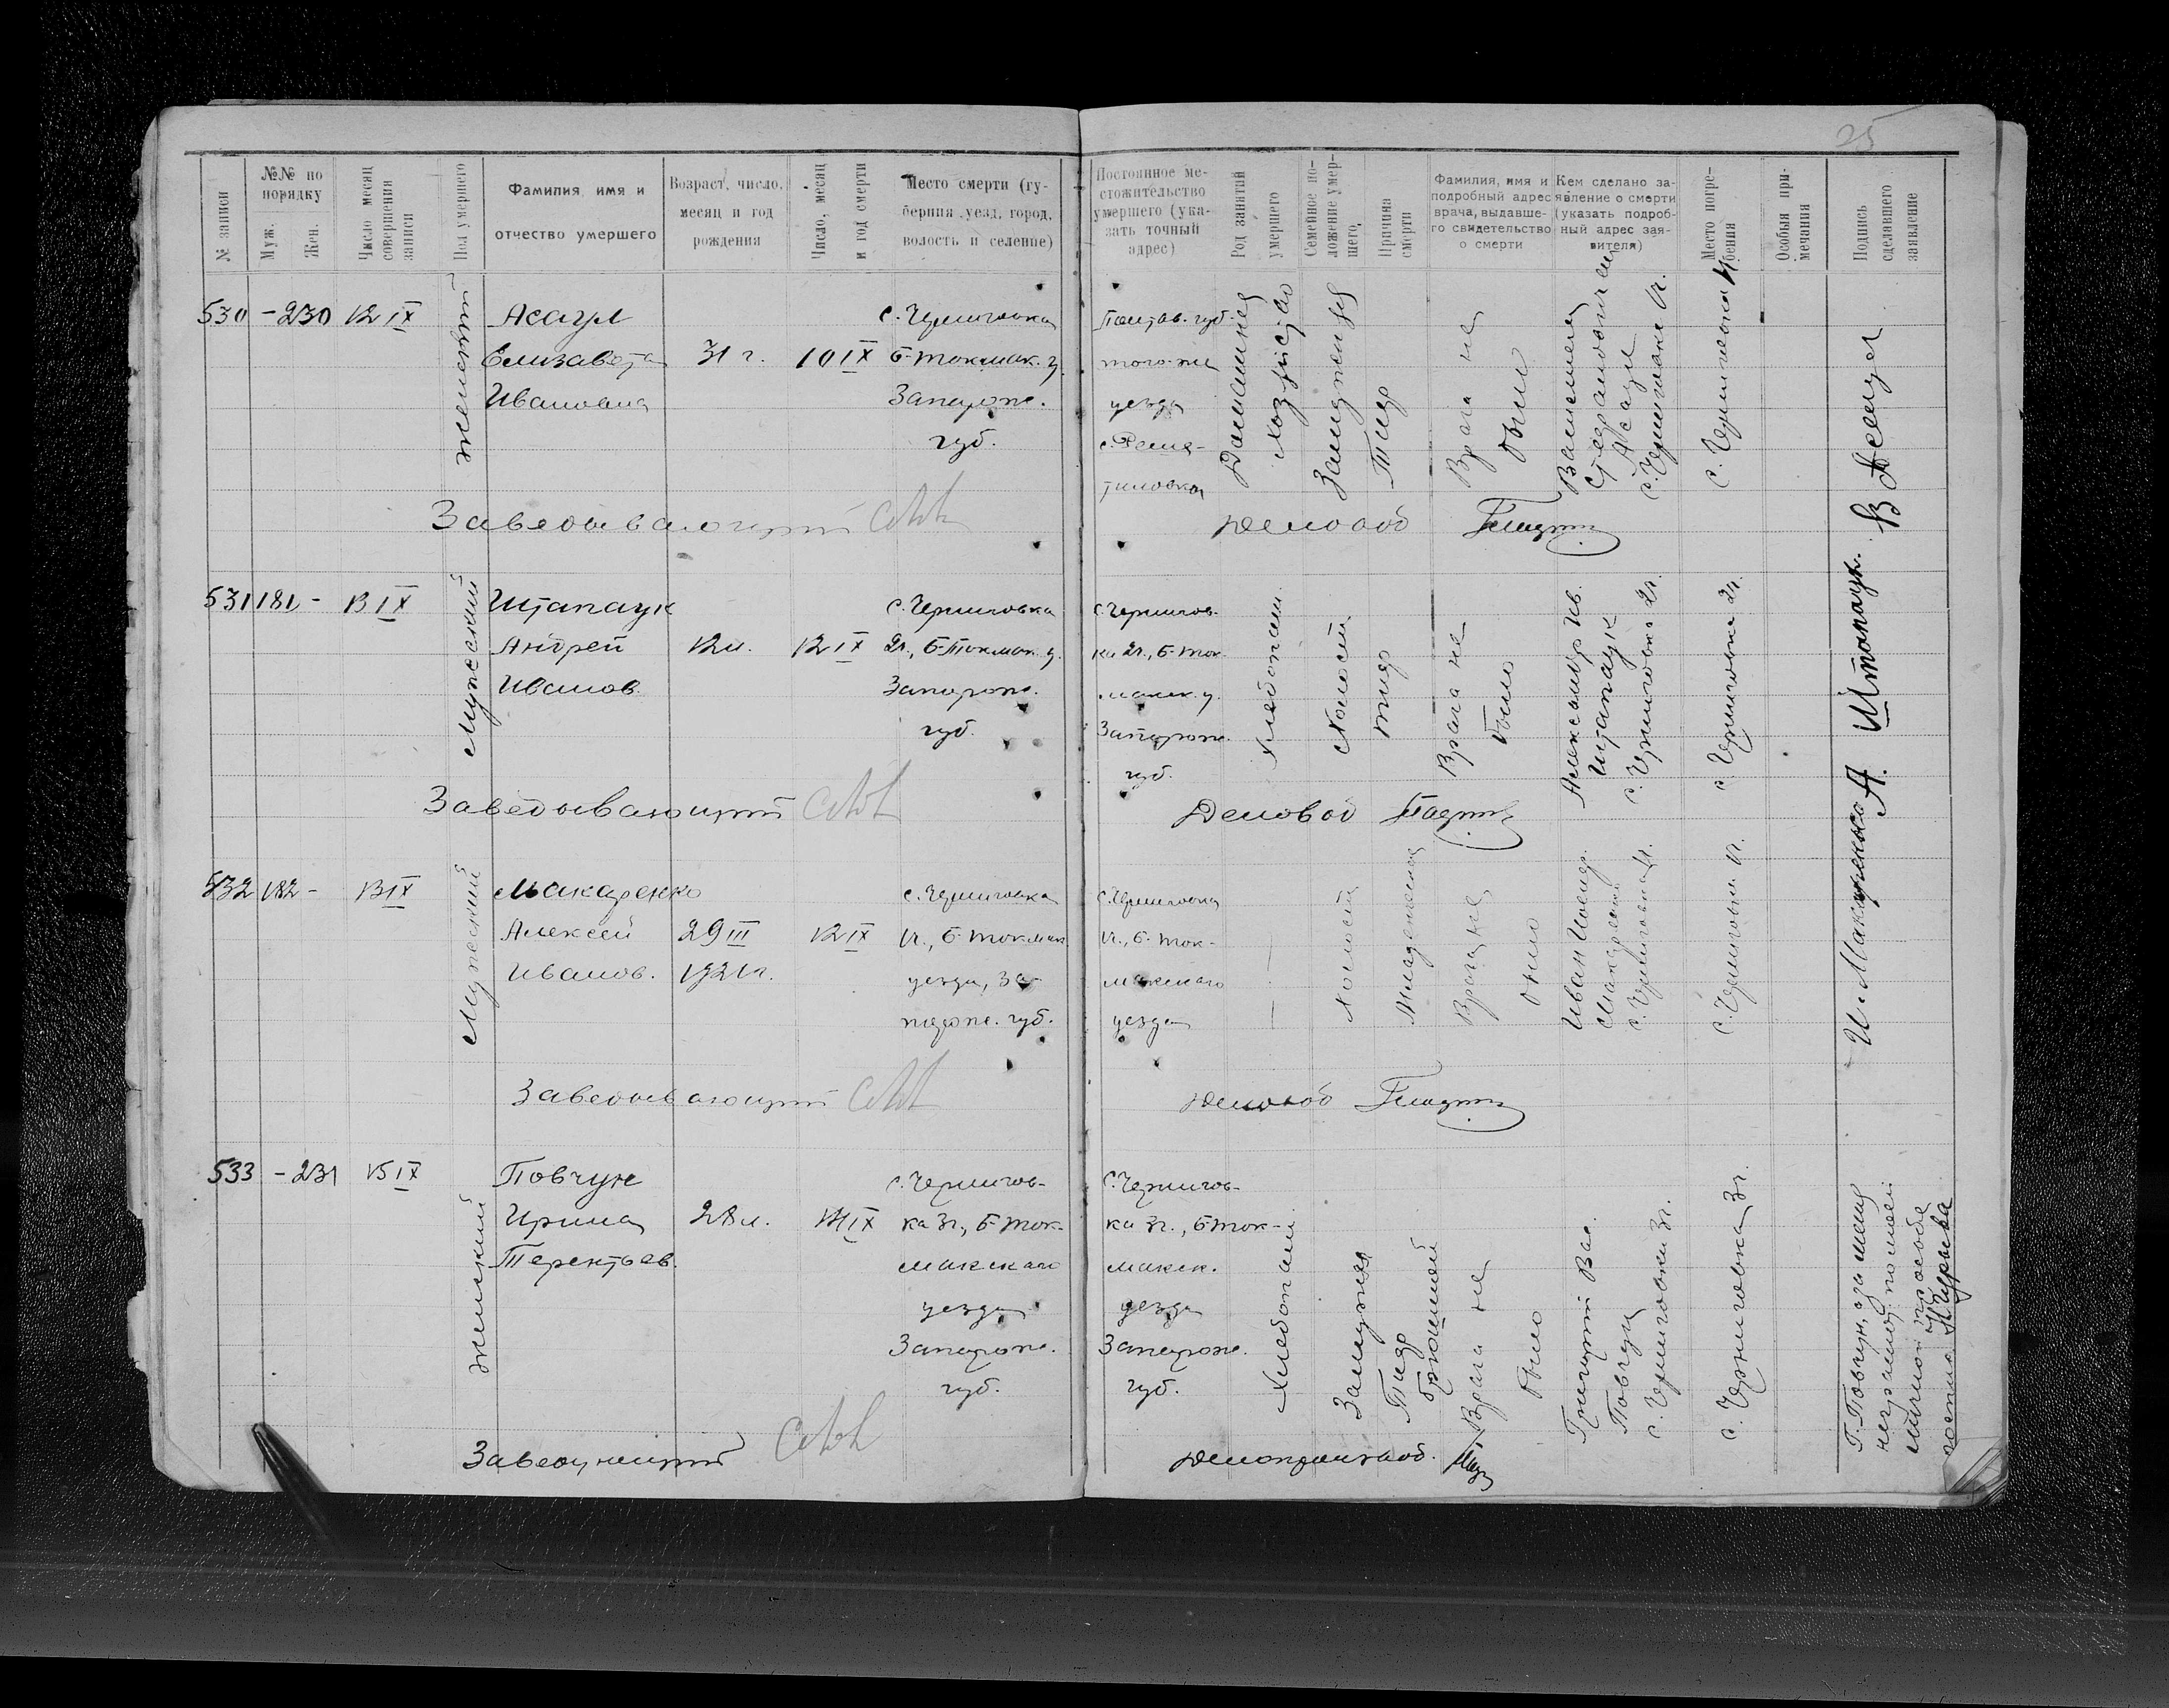 25
№ записи
№№ по порядку
Муж.
Жен.
Число месяц совершения записи
Пол умершего
Фамилия, имя и
отчество умершего
Возраст, число,
месяц и год
рождения
Число, месяц
и год смерти
Место смерти (гу-
берния, уезд, город,
волость и селение)
Постоянное ме-
стожительство
умершего (ука-
зать точный
адрес)
Род занятий
умершего
Семейное по-
ложение умер-
шего,
Причина
смерти
Фамилия, имя и
подробный адрес
врача, выдавше-
го свидетельство
о смерти
Кем сделано за-
явление о смерти
(указать подроб-
ный адрес зая-
вителя)
Место погре-
бения
Особыя при-
мечания
Подпись
сделавшего
заявление
530 - 230 12 IX
женский
Асаул
Елизавета
Ивановна
31 г.
10 IX
с. Черниговка
Б-Токмак. у.
Запорож.
губ.
Полтав. губ.
того-же
уезда
с. Реше-
тиловка
Домашнее
хозяйство
Замужняя
Тиф
Врача не
было
Асаул
с. Черниговки 1г.
с. Черниговка
Заведывающий
Деловод
531 181 - 13 IX
Мужеский
Штапаук
Андрей
Иванов.
12 л.
12 IX
с. Черниговка
2г., Б-Токмак. у.
Запорож.
губ.
с. Чернигов-
ка 2г., Б-Ток-
макск. у.
Запорож.
губ.
Хлебопаш.
Холостой
Тиф
Врача не
было
Александр Ив.
Штапаук
с. Черниговка 2г.
с. Черниговка 2г.
А. Штапаук.
Заведывающий
Деловод
532 182 - 13 IX
Мужеский
Макаренко
Алексей
Иванов.
29 III
1921 г.
12 IX
с. Черниговка
1г., Б-Токмак
уезда, За-
порож. губ.
с. Черниговка
1г., Б-Ток-
макскаго
уезда
Холостой
Младенческая
Врача не
было
Иван
Макаренко
с. Черниговка 1г.
с. Черниговка 1г.
И. Макаренко
Заведывающий
Деловод
533 - 231 15 IX
женский
Повчун
Ирина
Терентьев.
28 л.
14 IX
с. Чернигов-
ка 3г., Б-Ток-
макскаго
уезда
Запорож.
губ.
с. Чернигов-
ка 3г., Б-Ток-
макск.
уезда
Запорож.
губ.
Хлебопаш
Замужняя
Тиф
брюшной
Врача не
было
Григорий Вас.
Повчун
с. Черниговки 3г.
с. Черниговка 3г.
Г. Повчун, а за меня
неграмот. по моей
личной просьбе
Заведующий
Делопроизвод.